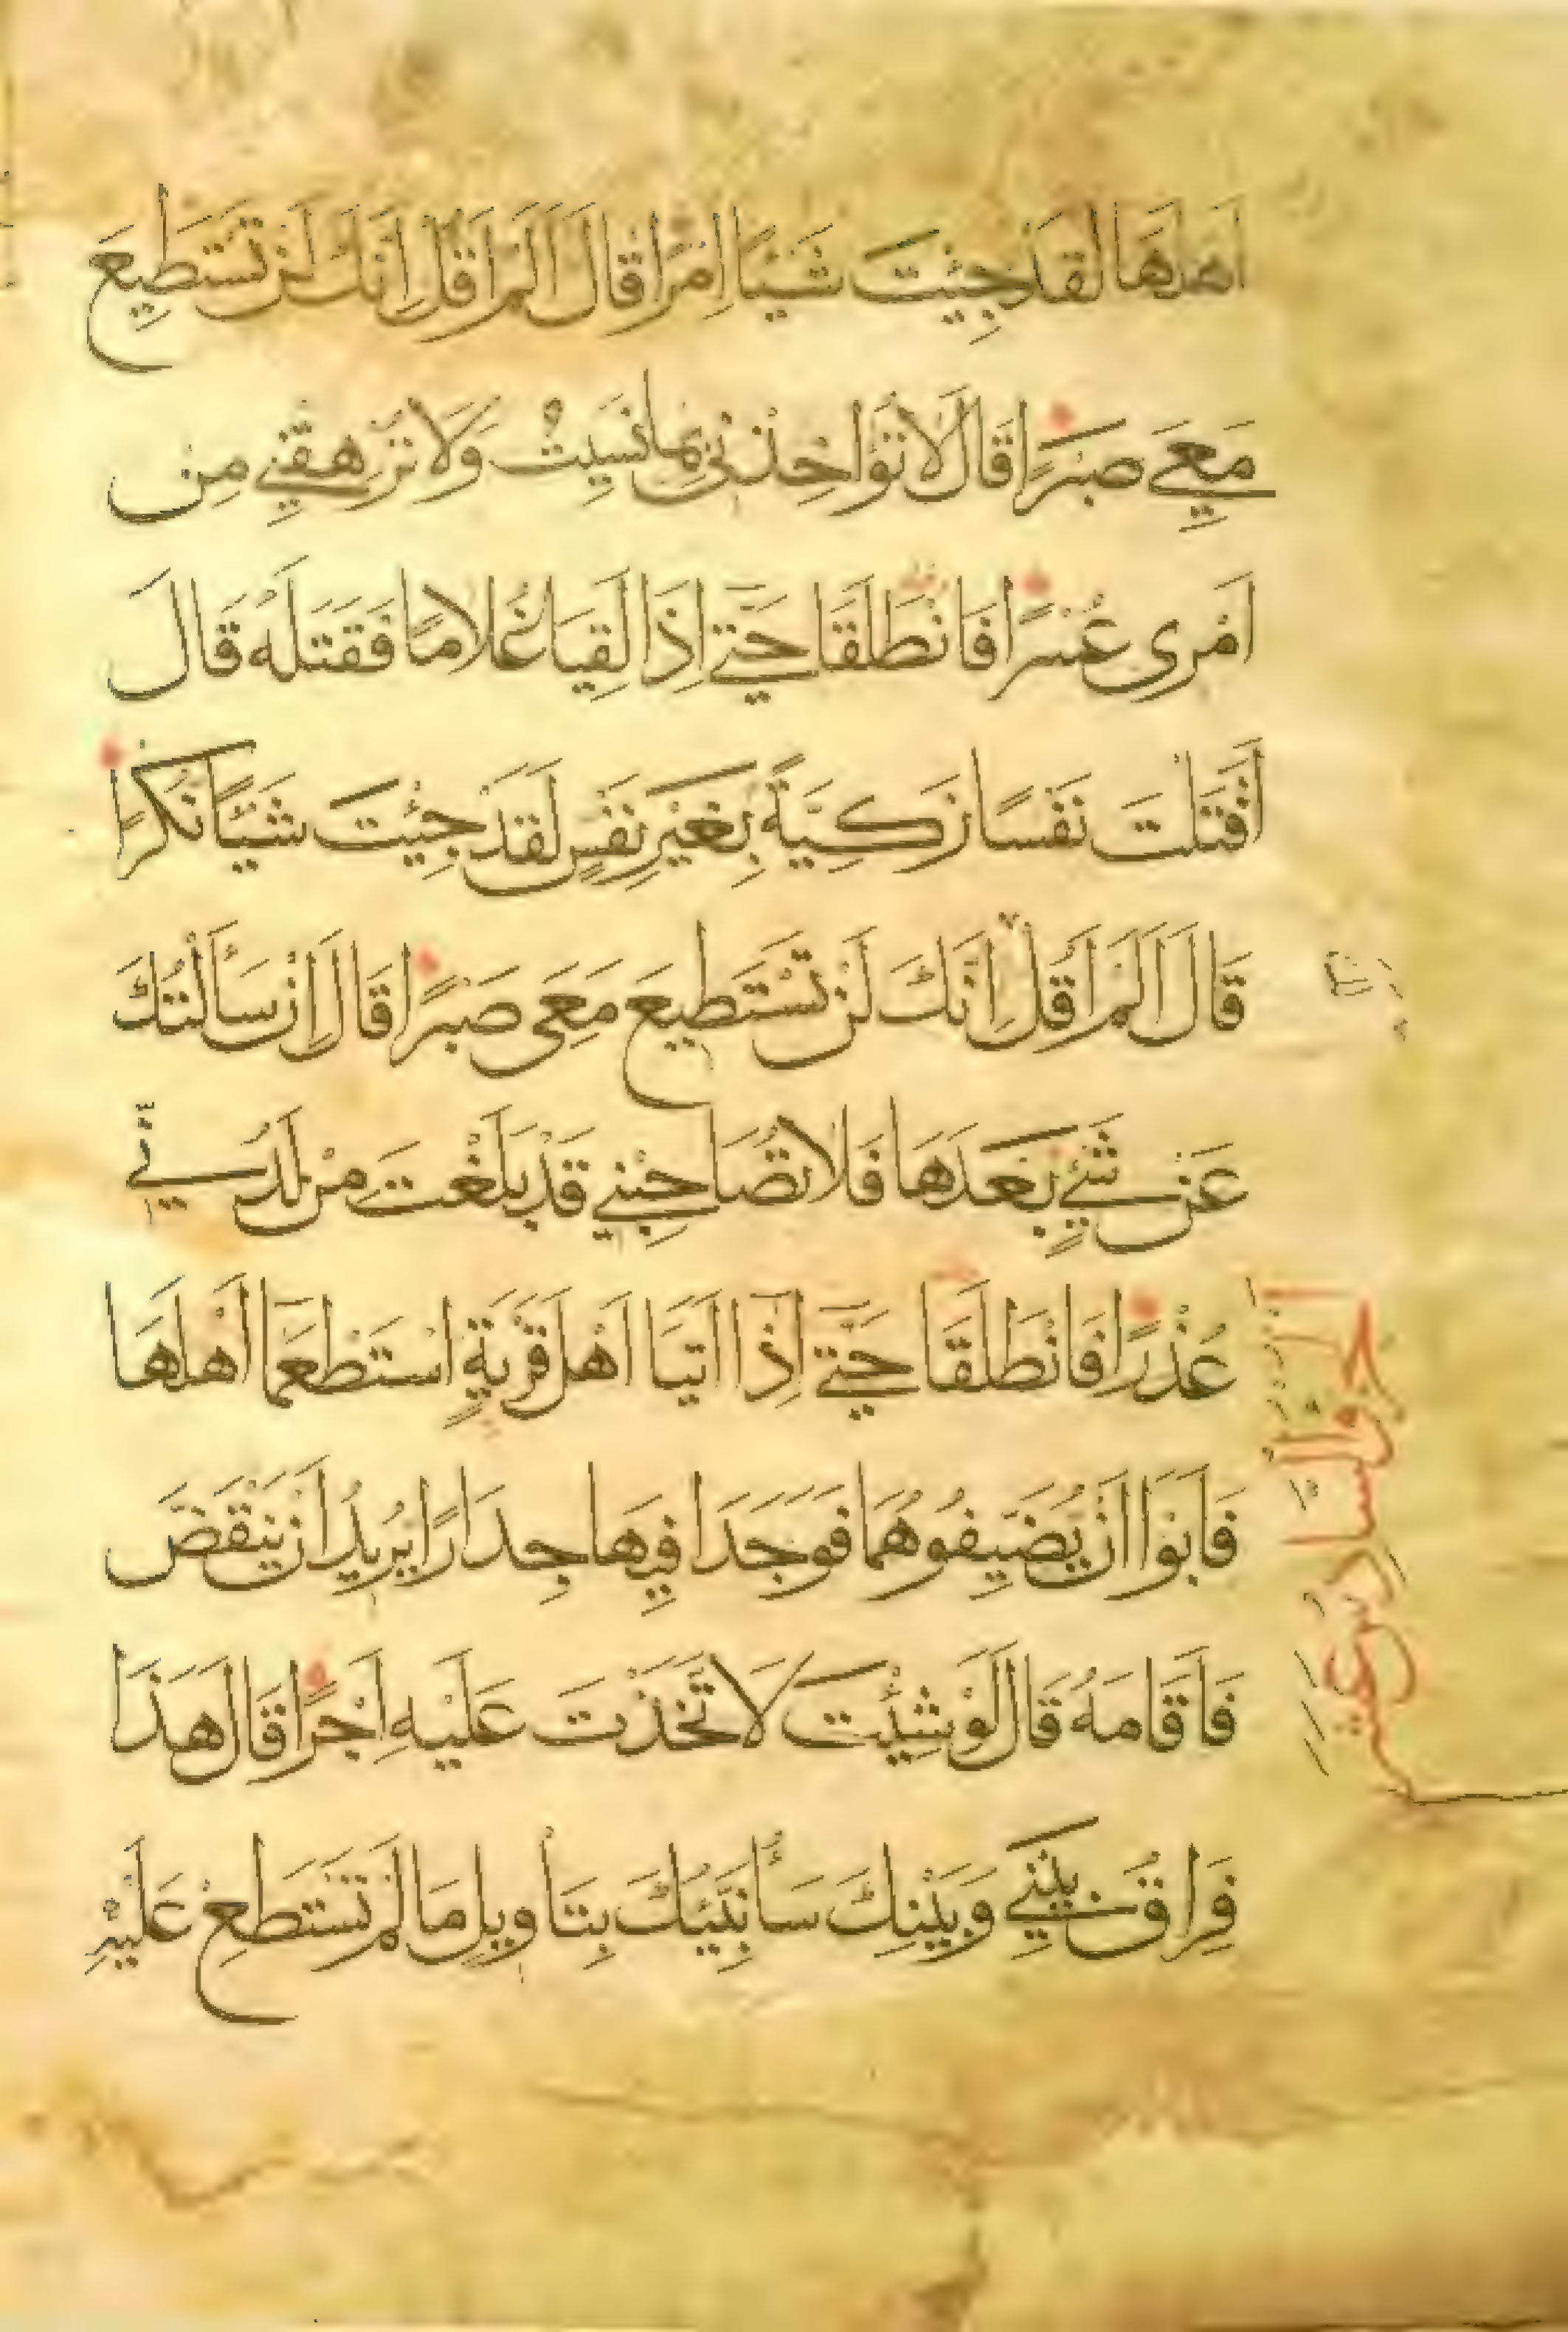 اَهْلَهَا لَقَدْ جِئْتَ شَيْـًٔا اِمْرًا قَالَ اَلَمْ اَقُلْ اِنَّكَ لَنْ تَسْتَطِيعَ
مَعِيَ صَبْرًا قَالَ لَا تُؤَاخِذْنِي بِمَا نَسِيتُ وَلَا تُرْهِقْنِي مِنْ
اَمْرِي عُسْرًا فَانْطَلَقَا حَتَّى اِذَا لَقِيَا غُلَامًا فَقَتَلَهُ قَالَ
اَقَتَلْتَ نَفْسًا زَكِيَّةً بِغَيْرِ نَفْسٍ لَقَدْ جِئْتَ شَيْـًٔا نُكْرًا
قَالَ اَلَمْ اَقُلْ اِنَّكَ لَنْ تَسْتَطِيعَ مَعِيَ صَبْرًا قَالَ اِنْ سَأَلْتُكَ
عَنْ شَيْءٍ بَعْدَهَا فَلَا تُصَاحِبْنِي قَدْ بَلَغْتَ مِنْ لَدُنِّي
عُذْرًا فَانْطَلَقَا حَتَّى اِذَا اَتَيَا اَهْلَ قَرْيَةٍ اسْتَطْعَمَا اَهْلَهَا
فَاَبَوْا اَنْ يُضَيِّفُوهُمَا فَوَجَدَا فِيهَا جِدَارًا يُرِيدُ اَنْ يَنْقَضَّ
فَاَقَامَهُ قَالَ لَوْ شِئْتَ لَاتَّخَذْتَ عَلَيْهِ اَجْرًا قَالَ هَذَا
فِرَاقُ بَيْنِي وَبَيْنِكَ سَأُنَبِّئُكَ بِتَأْوِيلِ مَا لَمْ تَسْتَطِعْ عَلَيْهِ
الجزؤالسادس عشر